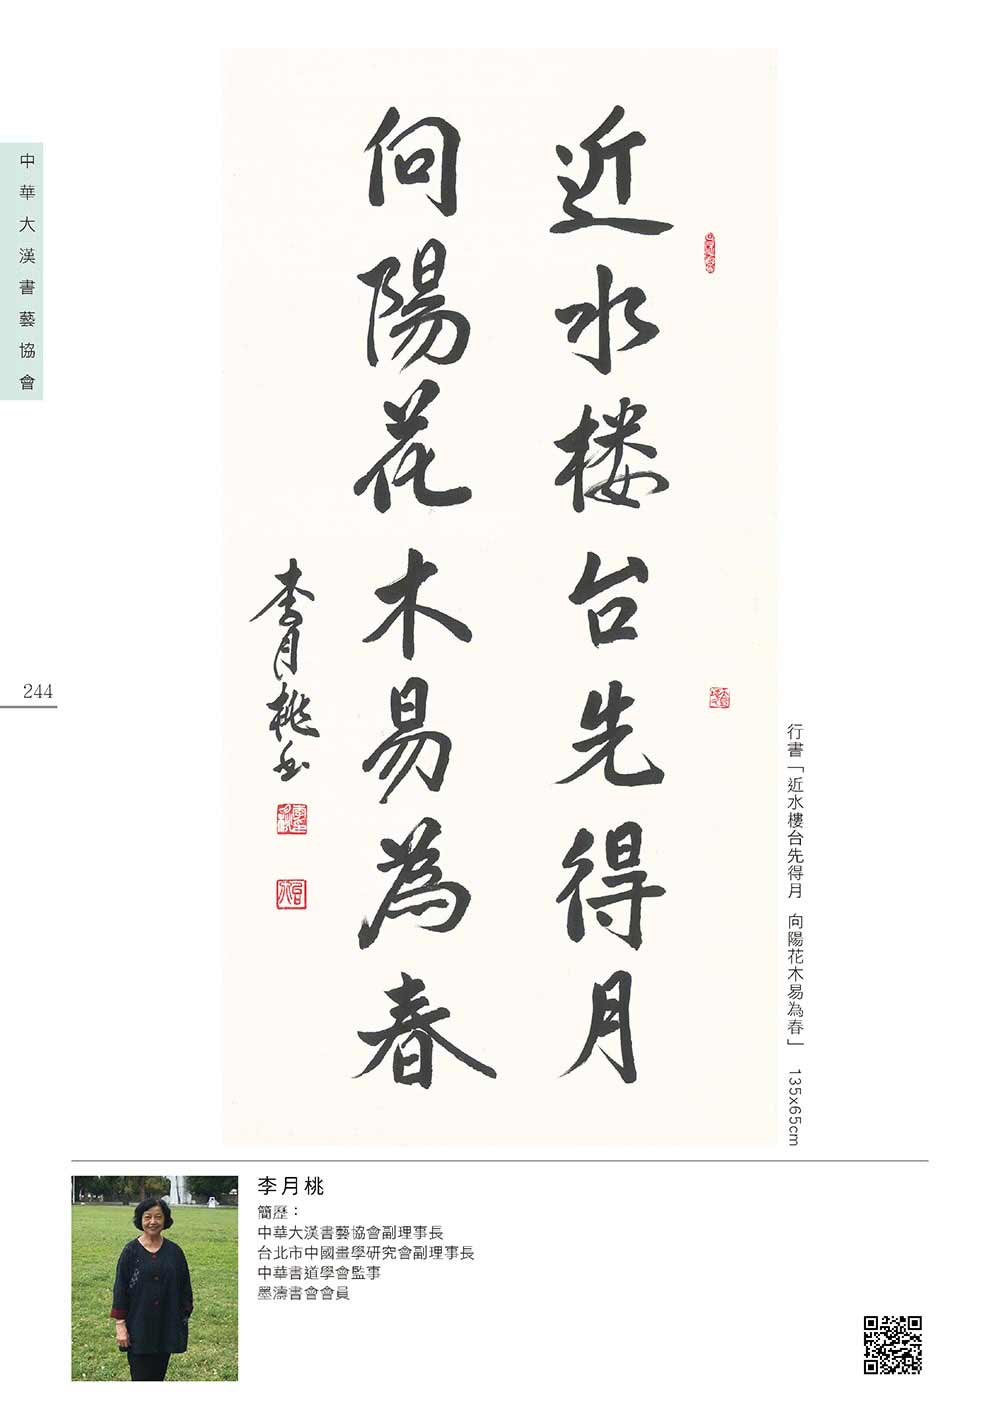 中華大漢書藝協會
244
近水楼台先得月
向陽花木易為春
李月桃書
行書「近水樓台先得月 向陽花木易為春」 135x65cm
李月桃
簡歷：
中華大漢書藝協會副理事長
台北市中國畫學研究會副理事長
中華書道學會監事
墨濤書會會員